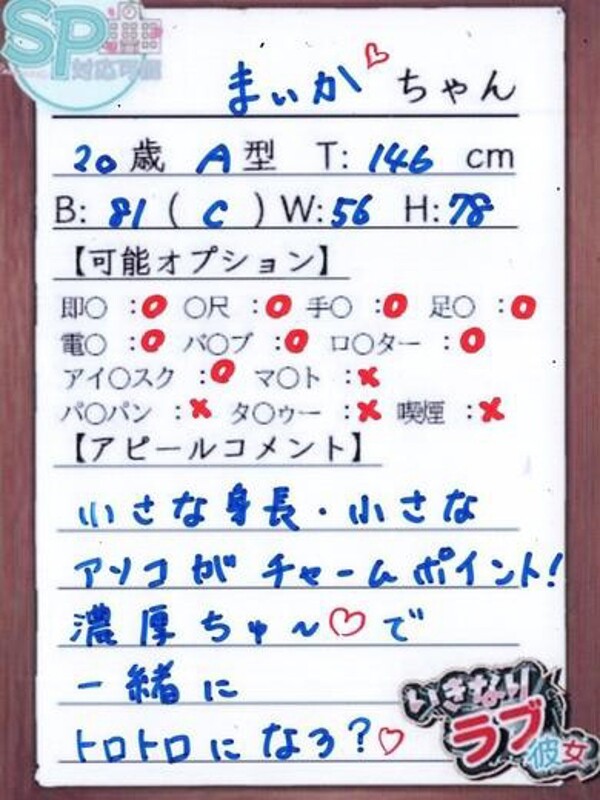 SP
対応可能
まいか♡ちゃん
20歳 A型 T: 146 cm
B: 81 ( C ) W: 56 H: 78
【可能オプション】
即〇 :○ 〇尺 :○ 手〇 :○ 足〇 :○
電〇 :○ バ〇ブ :○ ロ〇ター :○
アイ〇スク :○ マ〇ト :×
パ〇パン :× タ〇ゥー :× 喫煙 :×
【アピールコメント】
小さな身長・小さな
アソコがチャームポイント!
濃厚ちゅ~♡で
一緒に
トロトロになろ?♡
いきなり
ラブ彼女